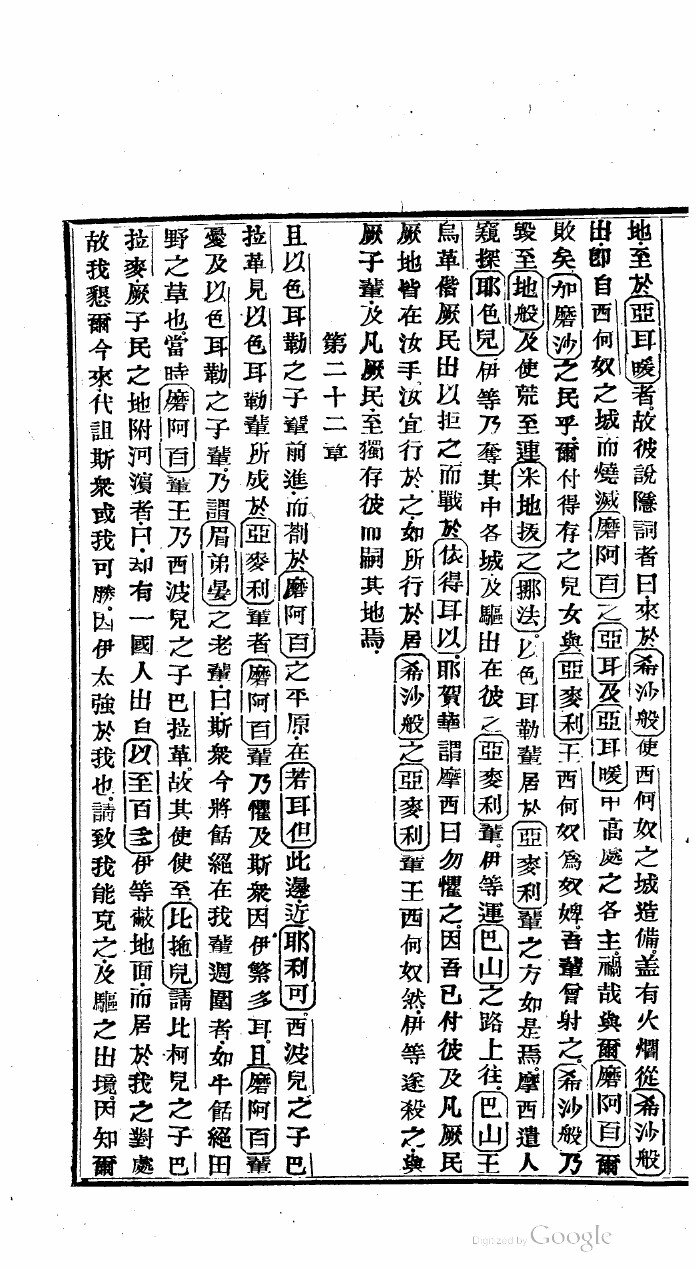 地至於亞耳暖者。故彼說隱詞者曰、來於希沙般使西何奴之城造備。盖有火爛從希沙般
出、即自西何奴之城而燒滅磨阿百之亞耳及亞耳暖中高處之各主。禍哉與爾磨阿百爾
敗矣加磨沙之民乎、爾付得存之兒女與亞麥利王西何奴為奴婢。吾輩曾射之。希沙般乃
毀至地般及使荒至連米地抜之挪法。以色耳勒輩居於亞麥利輩之方如是焉。摩西遣人
窺探耶色兒伊等乃奪其中各城及驅出在彼之亞麥利輩。伊等運巴山之路上往。巴山王
烏革偕厥民出以拒之而戰於依得耳以耶賀華謂摩西曰勿懼之。因吾已付彼及凡厥民
厥地皆在汝手、汝宜行於之、如所行於居希沙般之亞麥利輩王西何奴然。伊等遂殺之、與
厥子輩、及凡厥民、至獨存彼而嗣其地焉。
第二十二章
且以色耳勒之子輩前進、而劄於磨阿百之平原、在若耳但此邊近耶利可。西波兒之子巴
拉革見以色耳勒輩所成於亞麥利輩者磨阿百輩乃懼及斯衆因伊繁多耳。且磨阿百輩
憂及以色耳勒之子輩。乃謂眉弟晏之老輩、曰斯衆今將餂絕在我輩週圍者、如牛餂絕田
野之草也。當時磨阿百輩王乃西波兒之子巴拉革。故其使使至比拖兒請比柯兒之子巴
拉麥、厥子民之地附河濱者曰、却有一國人出自以至百多伊等蔽地面、而居於我之對處
故我懇爾今來、代詛斯衆或我可勝。因伊太強於我也。請致我能克之、及驅之出境。因知爾
Digitized by Google